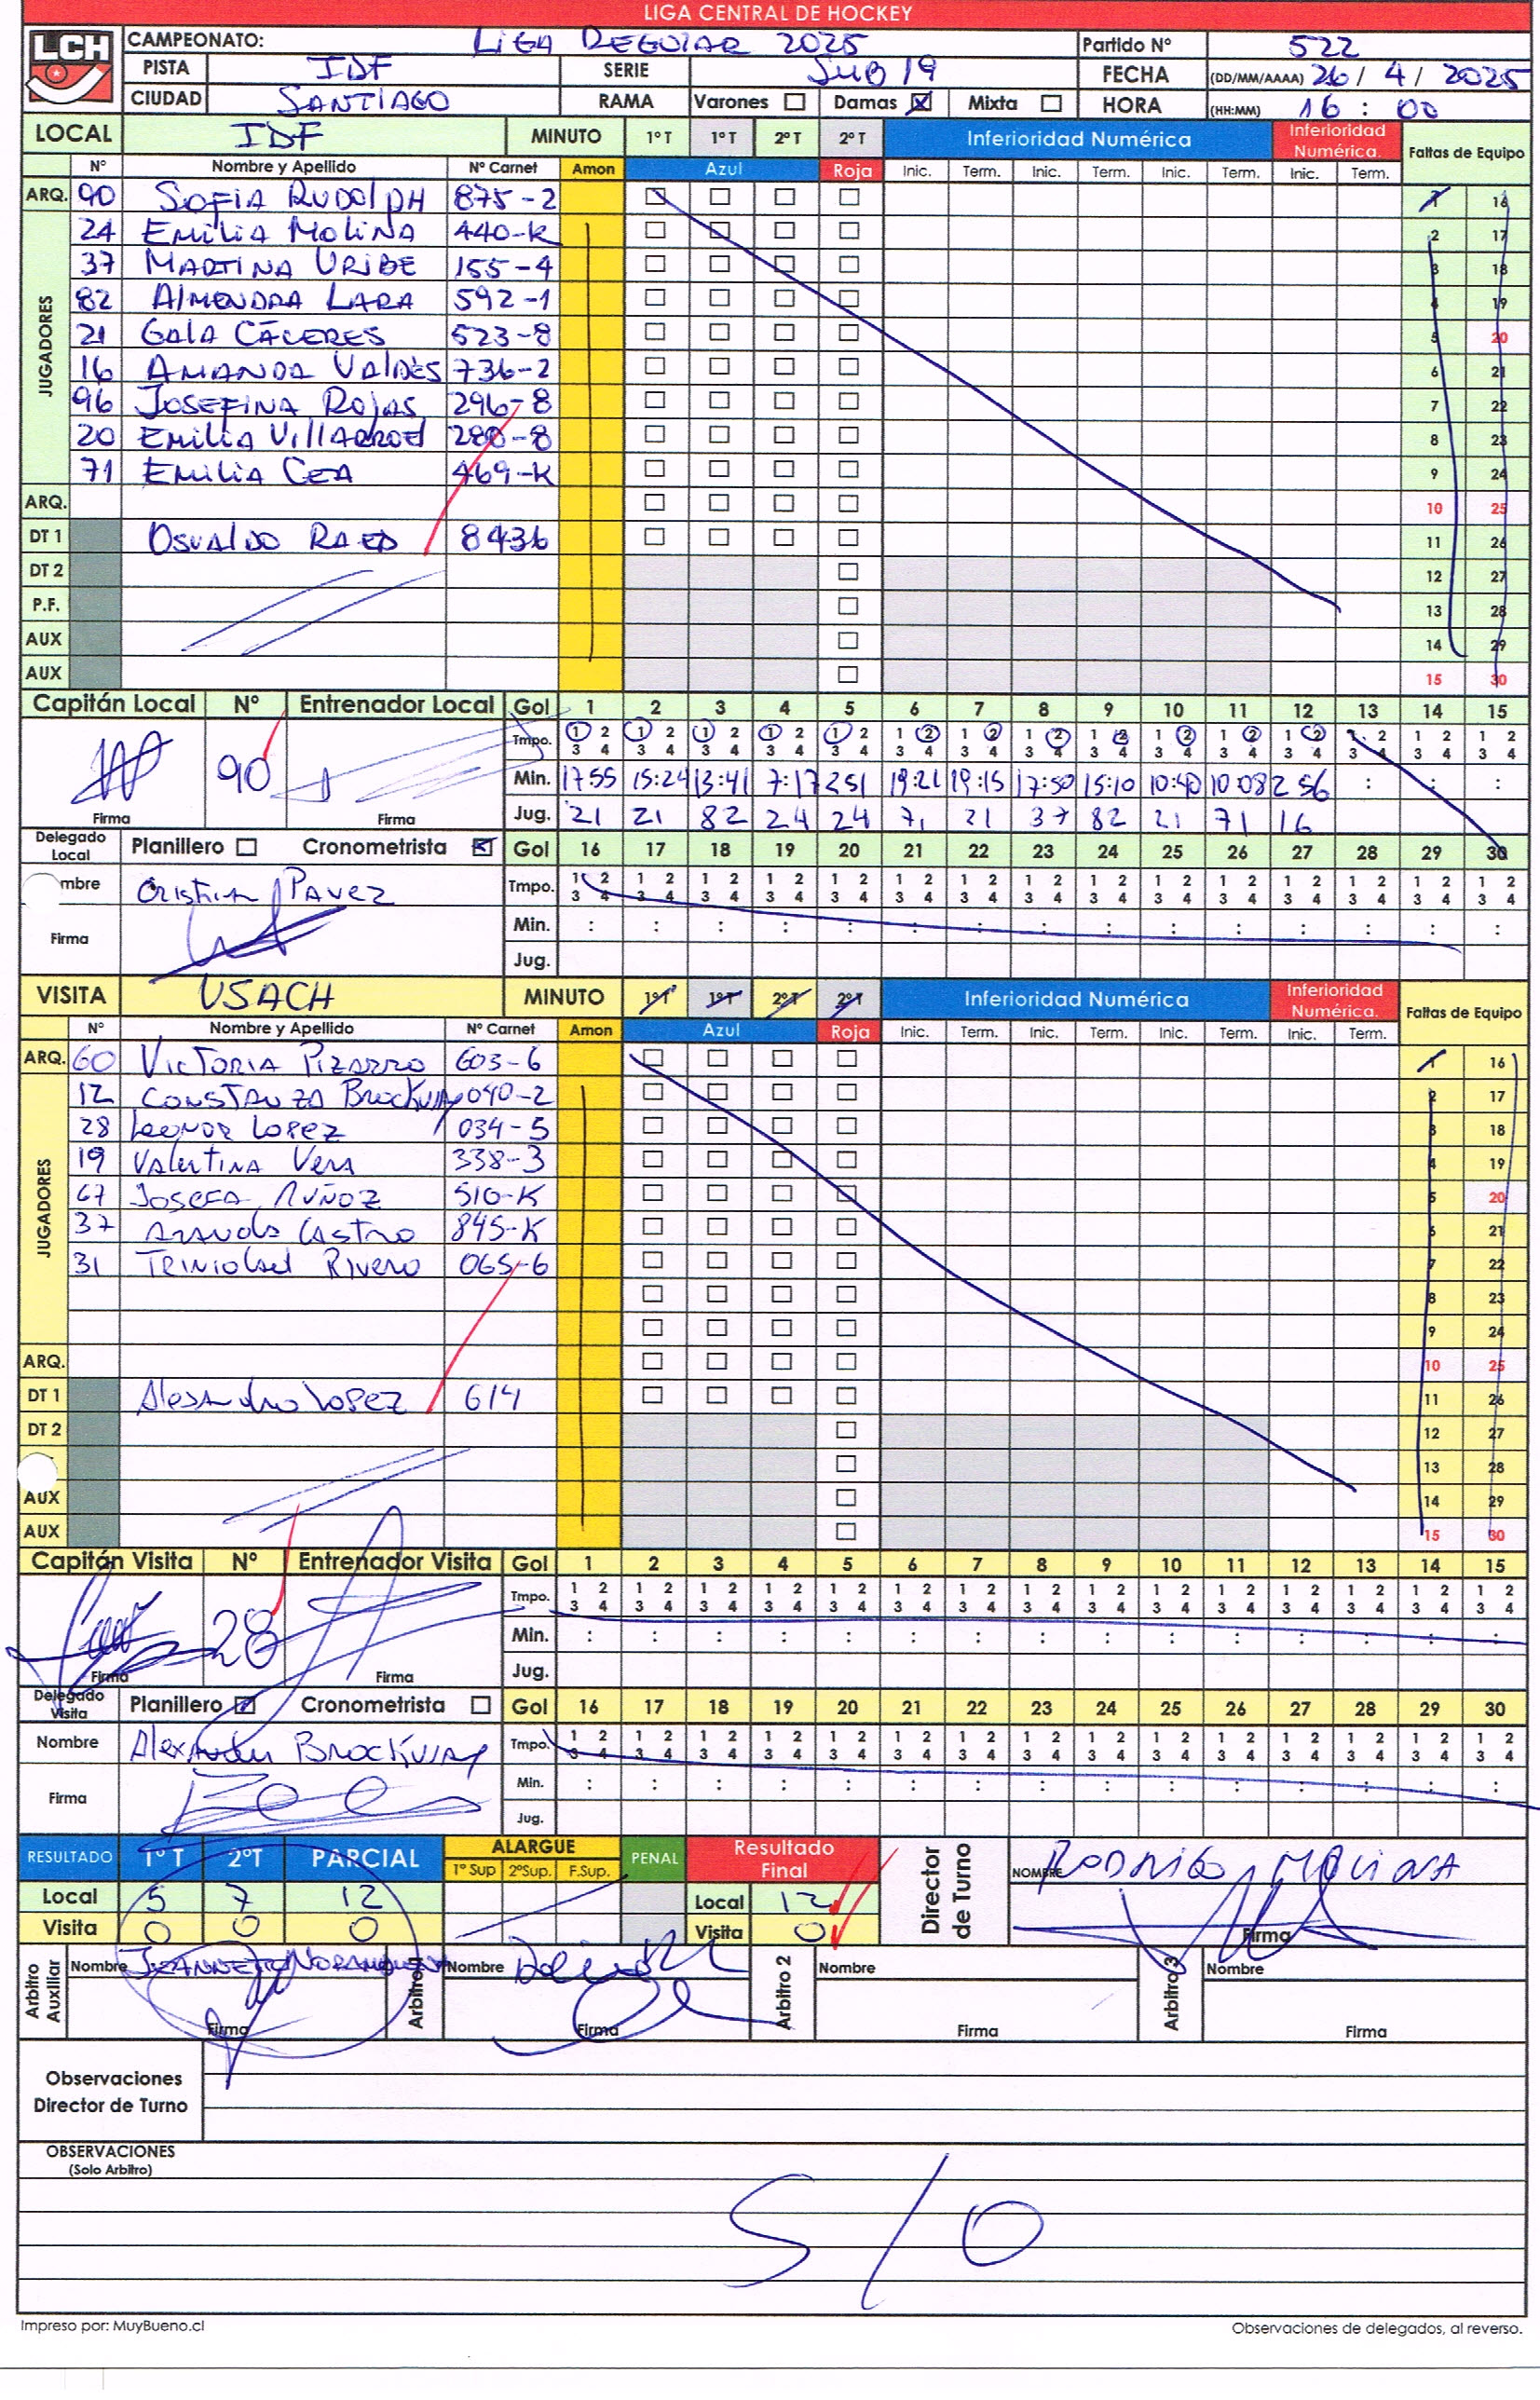 LIGA CENTRAL DE HOCKEY
LCH
CAMPEONATO: LIGA REGULAR 2025 Partido Nº 522
PISTA IDF SERIE SUB 19 FECHA (DD/MM/AAAA) 26 / 4 / 2025
CIUDAD SANTIAGO RAMA Varones Damas Mixta HORA (HH:MM) 16 : 00
LOCAL IDF MINUTO 1º T 1º T 2º T 2º T Inferioridad Numérica Inferioridad Numérica. Faltas de Equipo
Nº Nombre y Apellido Nº Carnet Amon Azul Roja Inic. Term. Inic. Term. Inic. Term. Inic. Term.
ARQ. 90 SOFIA RUDOLPH 875-2 1 16
JUGADORES
24 EMILIA MOLINA 440-K 2 17
37 MARTINA URIBE 155-4 3 18
82 ALMENDRA LARA 592-1 4 19
21 GALA CÁCERES 523-8 5 20
16 AMANDA VALDÉS 736-2 6 21
96 JOSEFINA ROJAS 296-8 7 22
20 EMILIA VILLARROEL 280-8 8 23
71 EMILIA CEA 469-K 9 24
ARQ. 10 25
DT 1 OSVALDO RAED 8436 11 26
DT 2 12 27
P.F. 13 28
AUX 14 29
AUX 15 30
Capitán Local Nº Entrenador Local Gol 1 2 3 4 5 6 7 8 9 10 11 12 13 14 15
Tmpo. 1 2 1 2 1 2 1 2 1 2 1 2 1 2 1 2 1 2 1 2 1 2 1 2 1 2 1 2 1 2
3 4 3 4 3 4 3 4 3 4 3 4 3 4 3 4 3 4 3 4 3 4 3 4 3 4 3 4 3 4
90 Min. 17 55 15:24 13:41 7:17 2 51 19:21 19:15 17:50 15:10 10:40 10 08 2 56 : : :
Firma Firma Jug. 21 21 82 24 24 71 21 37 82 21 71 16
Delegado Local Planillero Cronometrista Gol 16 17 18 19 20 21 22 23 24 25 26 27 28 29 30
mbre Cristian Pavez Tmpo. 1 2 1 2 1 2 1 2 1 2 1 2 1 2 1 2 1 2 1 2 1 2 1 2 1 2 1 2 1 2
3 4 3 4 3 4 3 4 3 4 3 4 3 4 3 4 3 4 3 4 3 4 3 4 3 4 3 4 3 4
Firma Min. : : : : : : : : : : : : : : :
Jug.
VISITA USACH MINUTO 1º T 1º T 2º T 2º T Inferioridad Numérica Inferioridad Numérica. Faltas de Equipo
Nº Nombre y Apellido Nº Carnet Amon Azul Roja Inic. Term. Inic. Term. Inic. Term. Inic. Term.
ARQ. 60 VICTORIA PIZARRO 603-6 1 16
JUGADORES
12 CONSTANZA BROCKWAY 040-2 2 17
28 LEONOR LOPEZ 034-5 3 18
19 VALENTINA VERA 338-3 4 19
67 JOSEFA NUÑOZ 510-K 5 20
37 CASTRO 845-K 6 21
31 TRINIDAD RIVERO 065-6 7 22
8 23
9 24
ARQ. 10 25
DT 1 Alejandro Lopez 614 11 26
DT 2 12 27
13 28
AUX 14 29
AUX 15 30
Capitán Visita Nº Entrenador Visita Gol 1 2 3 4 5 6 7 8 9 10 11 12 13 14 15
Tmpo. 1 2 1 2 1 2 1 2 1 2 1 2 1 2 1 2 1 2 1 2 1 2 1 2 1 2 1 2 1 2
3 4 3 4 3 4 3 4 3 4 3 4 3 4 3 4 3 4 3 4 3 4 3 4 3 4 3 4 3 4
28 Min. : : : : : : : : : : : : : : :
Firma Firma Jug.
Delegado Visita Planillero Cronometrista Gol 16 17 18 19 20 21 22 23 24 25 26 27 28 29 30
Nombre Alexander Brockway Tmpo. 1 2 1 2 1 2 1 2 1 2 1 2 1 2 1 2 1 2 1 2 1 2 1 2 1 2 1 2 1 2
3 4 3 4 3 4 3 4 3 4 3 4 3 4 3 4 3 4 3 4 3 4 3 4 3 4 3 4 3 4
Firma Min. : : : : : : : : : : : : : : :
Jug.
RESULTADO 1º T 2ºT PARCIAL ALARGUE 1º Sup 2ºSup. F.Sup. PENAL Resultado Final Director de Turno NOMBRE RODRIGO MOLINA
Local 5 7 12 Local 12
Visita 0 0 0 Visita 0 Firma
Arbitro Auxiliar Nombre JEANNETTE Arbitro 1 Nombre Arbitro 2 Nombre Arbitro 3 Nombre
Firma Firma Firma Firma
Observaciones
Director de Turno
OBSERVACIONES
(Solo Arbitro)
S/O
Impreso por: MuyBueno.cl Observaciones de delegados, al reverso.